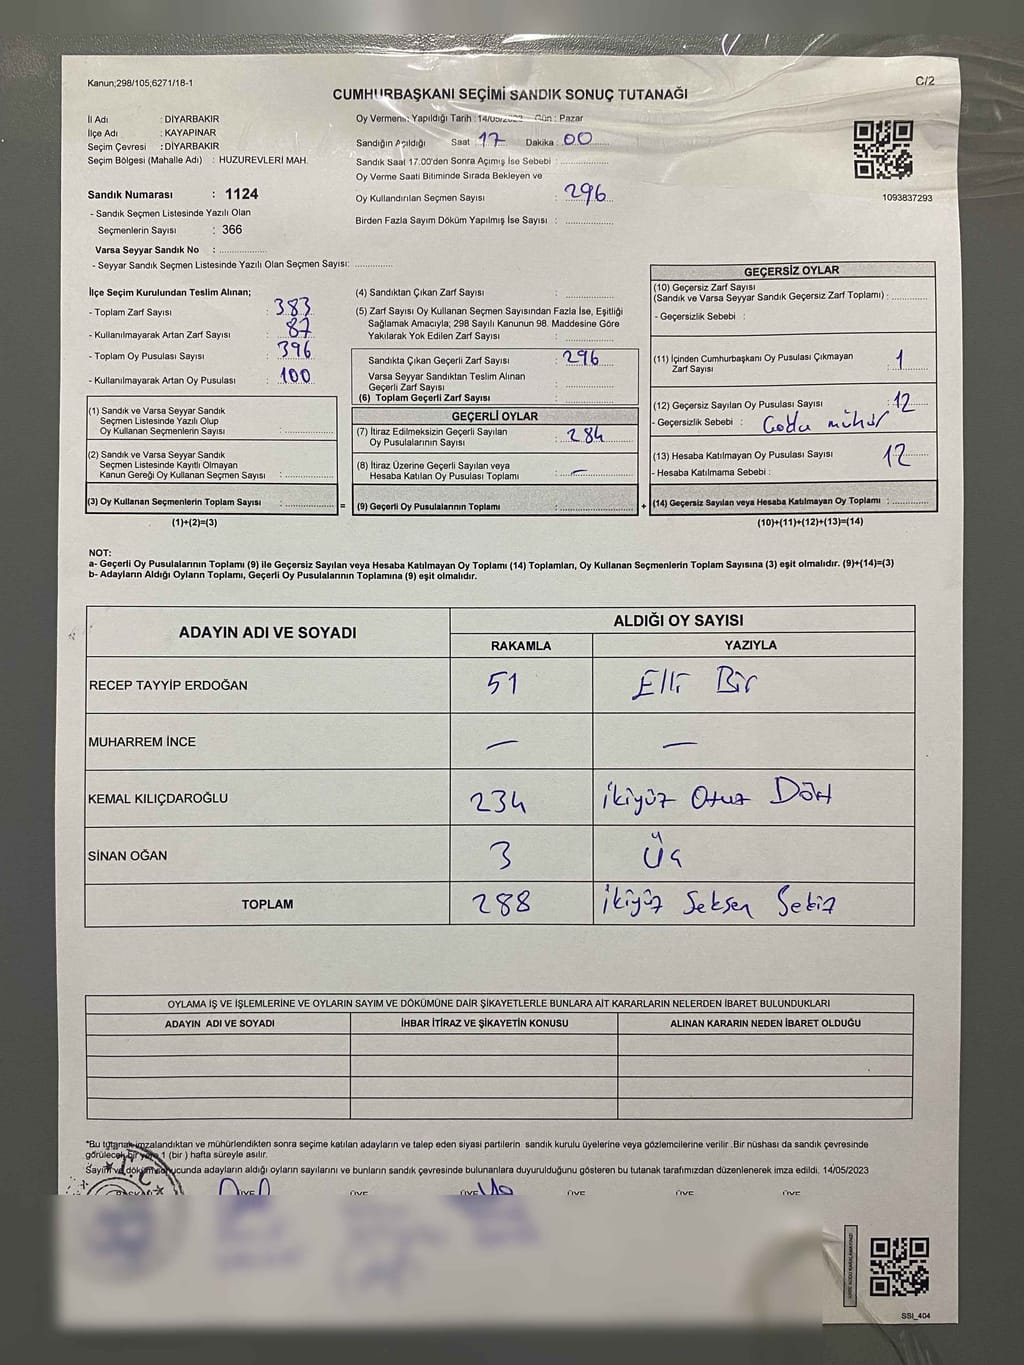 Kanun;298/105;6271/18-1
C/2
CUMHURBAŞKANI SEÇİMİ SANDIK SONUÇ TUTANAĞI
İl Adı : DİYARBAKIR
İlçe Adı : KAYAPINAR
Seçim Çevresi : DİYARBAKIR
Seçim Bölgesi (Mahalle Adı) : HUZUREVLERİ MAH.
Sandık Numarası : 1124
- Sandık Seçmen Listesinde Yazılı Olan
Seçmenlerin Sayısı : 366
Varsa Seyyar Sandık No :
- Seyyar Sandık Seçmen Listesinde Yazılı Olan Seçmen Sayısı:
Oy Vermenin Yapıldığı Tarih : 14/05/2023 Gün : Pazar
Sandığın Açıldığı Saat : 17 Dakika : 00
Sandık Saat 17.00'den Sonra Açımış İse Sebebi :
Oy Verme Saati Bitiminde Sırada Bekleyen ve
Oy Kullandırılan Seçmen Sayısı : 296
Birden Fazla Sayım Döküm Yapılmış İse Sayısı :
1093837293
İlçe Seçim Kurulundan Teslim Alınan;
- Toplam Zarf Sayısı : 383
- Kullanılmayarak Artan Zarf Sayısı : 87
- Toplam Oy Pusulası Sayısı : 396
- Kullanılmayarak Artan Oy Pusulası : 100
(1) Sandık ve Varsa Seyyar Sandık
Seçmen Listesinde Yazılı Olup
Oy Kullanan Seçmenlerin Sayısı :
(2) Sandık ve Varsa Seyyar Sandık
Seçmen Listesinde Kayıtlı Olmayan
Kanun Gereği Oy Kullanan Seçmen Sayısı :
(3) Oy Kullanan Seçmenlerin Toplam Sayısı :
(1)+(2)=(3)
(4) Sandıktan Çıkan Zarf Sayısı :
(5) Zarf Sayısı Oy Kullanan Seçmen Sayısından Fazla İse, Eşitliği
Sağlamak Amacıyla; 298 Sayılı Kanunun 98. Maddesine Göre
Yakılarak Yok Edilen Zarf Sayısı :
Sandıkta Çıkan Geçerli Zarf Sayısı : 296
Varsa Seyyar Sandıktan Teslim Alınan
Geçerli Zarf Sayısı :
(6) Toplam Geçerli Zarf Sayısı :
GEÇERLİ OYLAR
(7) İtiraz Edilmeksizin Geçerli Sayılan
Oy Pusulalarının Sayısı : 284
(8) İtiraz Üzerine Geçerli Sayılan veya
Hesaba Katılan Oy Pusulası Toplamı : —
= (9) Geçerli Oy Pusulalarının Toplamı :
GEÇERSİZ OYLAR
(10) Geçersiz Zarf Sayısı
(Sandık ve Varsa Seyyar Sandık Geçersiz Zarf Toplamı) :
- Geçersizlik Sebebi :
(11) İçinden Cumhurbaşkanı Oy Pusulası Çıkmayan
Zarf Sayısı : 1
(12) Geçersiz Sayılan Oy Pusulası Sayısı : 12
- Geçersizlik Sebebi : mühür
(13) Hesaba Katılmayan Oy Pusulası Sayısı : 12
- Hesaba Katılmama Sebebi :
+ (14) Geçersiz Sayılan veya Hesaba Katılmayan Oy Toplamı :
(10)+(11)+(12)+(13)=(14)
NOT:
a- Geçerli Oy Pusulalarının Toplamı (9) ile Geçersiz Sayılan veya Hesaba Katılmayan Oy Toplamı (14) Toplamları, Oy Kullanan Seçmenlerin Toplam Sayısına (3) eşit olmalıdır. (9)+(14)=(3)
b- Adayların Aldığı Oyların Toplamı, Geçerli Oy Pusulalarının Toplamına (9) eşit olmalıdır.
ADAYIN ADI VE SOYADI
ALDIĞI OY SAYISI
RAKAMLA YAZIYLA
RECEP TAYYİP ERDOĞAN 51 Elli Bir
MUHARREM İNCE — —
KEMAL KILIÇDAROĞLU 234 İkiyüz Otuz Dört
SİNAN OĞAN 3 Üç
TOPLAM 288 İkiyüz Seksen Sekiz
OYLAMA İŞ VE İŞLEMLERİNE VE OYLARIN SAYIM VE DÖKÜMÜNE DAİR ŞİKAYETLERLE BUNLARA AİT KARARLARIN NELERDEN İBARET BULUNDUKLARI
ADAYIN ADI VE SOYADI İHBAR İTİRAZ VE ŞİKAYETİN KONUSU ALINAN KARARIN NEDEN İBARET OLDUĞU
*Bu tutanak imzalandıktan ve mühürlendikten sonra seçime katılan adayların ve talep eden siyasi partilerin sandık kurulu üyelerine veya gözlemcilerine verilir .Bir nüshası da sandık çevresinde
görülecek bir yere 1 (bir ) hafta süreyle asılır.
Sayım ve döküm sonucunda adayların aldığı oyların sayılarını ve bunların sandık çevresinde bulunanlara duyurulduğunu gösteren bu tutanak tarafımızdan düzenlenerek imza edildi. 14/05/2023
T.C.
BAŞKAN ÜYE ÜYE ÜYE ÜYE ÜYE ÜYE
SSI_404